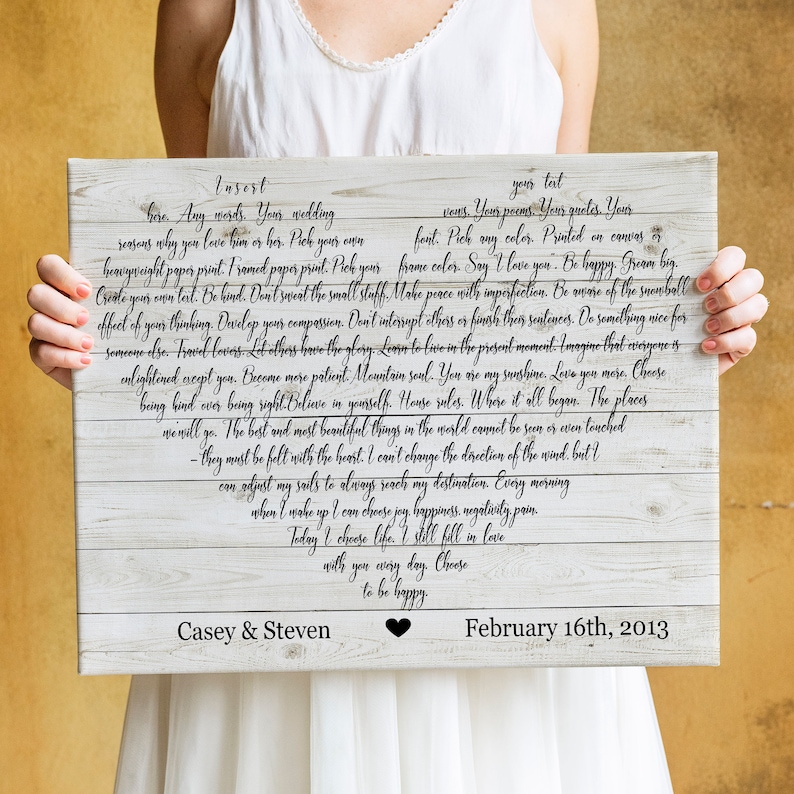 Insert your text
here. Any words. Your wedding vows. Your poems. Your quotes. Your
reasons why you love him or her. Pick your own font. Pick any color. Printed on canvas or
heavyweight paper print. Framed paper print. Pick your frame color. Say I love you . Be happy. Gream big.
Create your own text. Be kind. Don't sweat the small stuff. Make peace with imperfection. Be aware of the snowball
effect of your thinking. Develop your compassion. Don't interrupt others or finish their sentences. Do something nice for
someone else. Travel lovers. Let others have the glory. Learn to live in the present moment. Imagine that everyone is
enlightened except you. Become more patient. Mountain soul. You are my sunshine. Love you more. Choose
being kind over being right.Believe in yourself. House rules. Where it all began. The places
we'will go. The best and most beautiful things in the world cannot be seen or even touched
– they must be felt with the heart. I can't change the direction of the wind, but I
can adjust my sails to always reach my destination. Every morning
when I wake up I can choose joy, happiness, negativity, pain.
Today I choose life. I still fill in love
with you every day. Choose
to be happy.
Casey & Steven February 16th, 2013